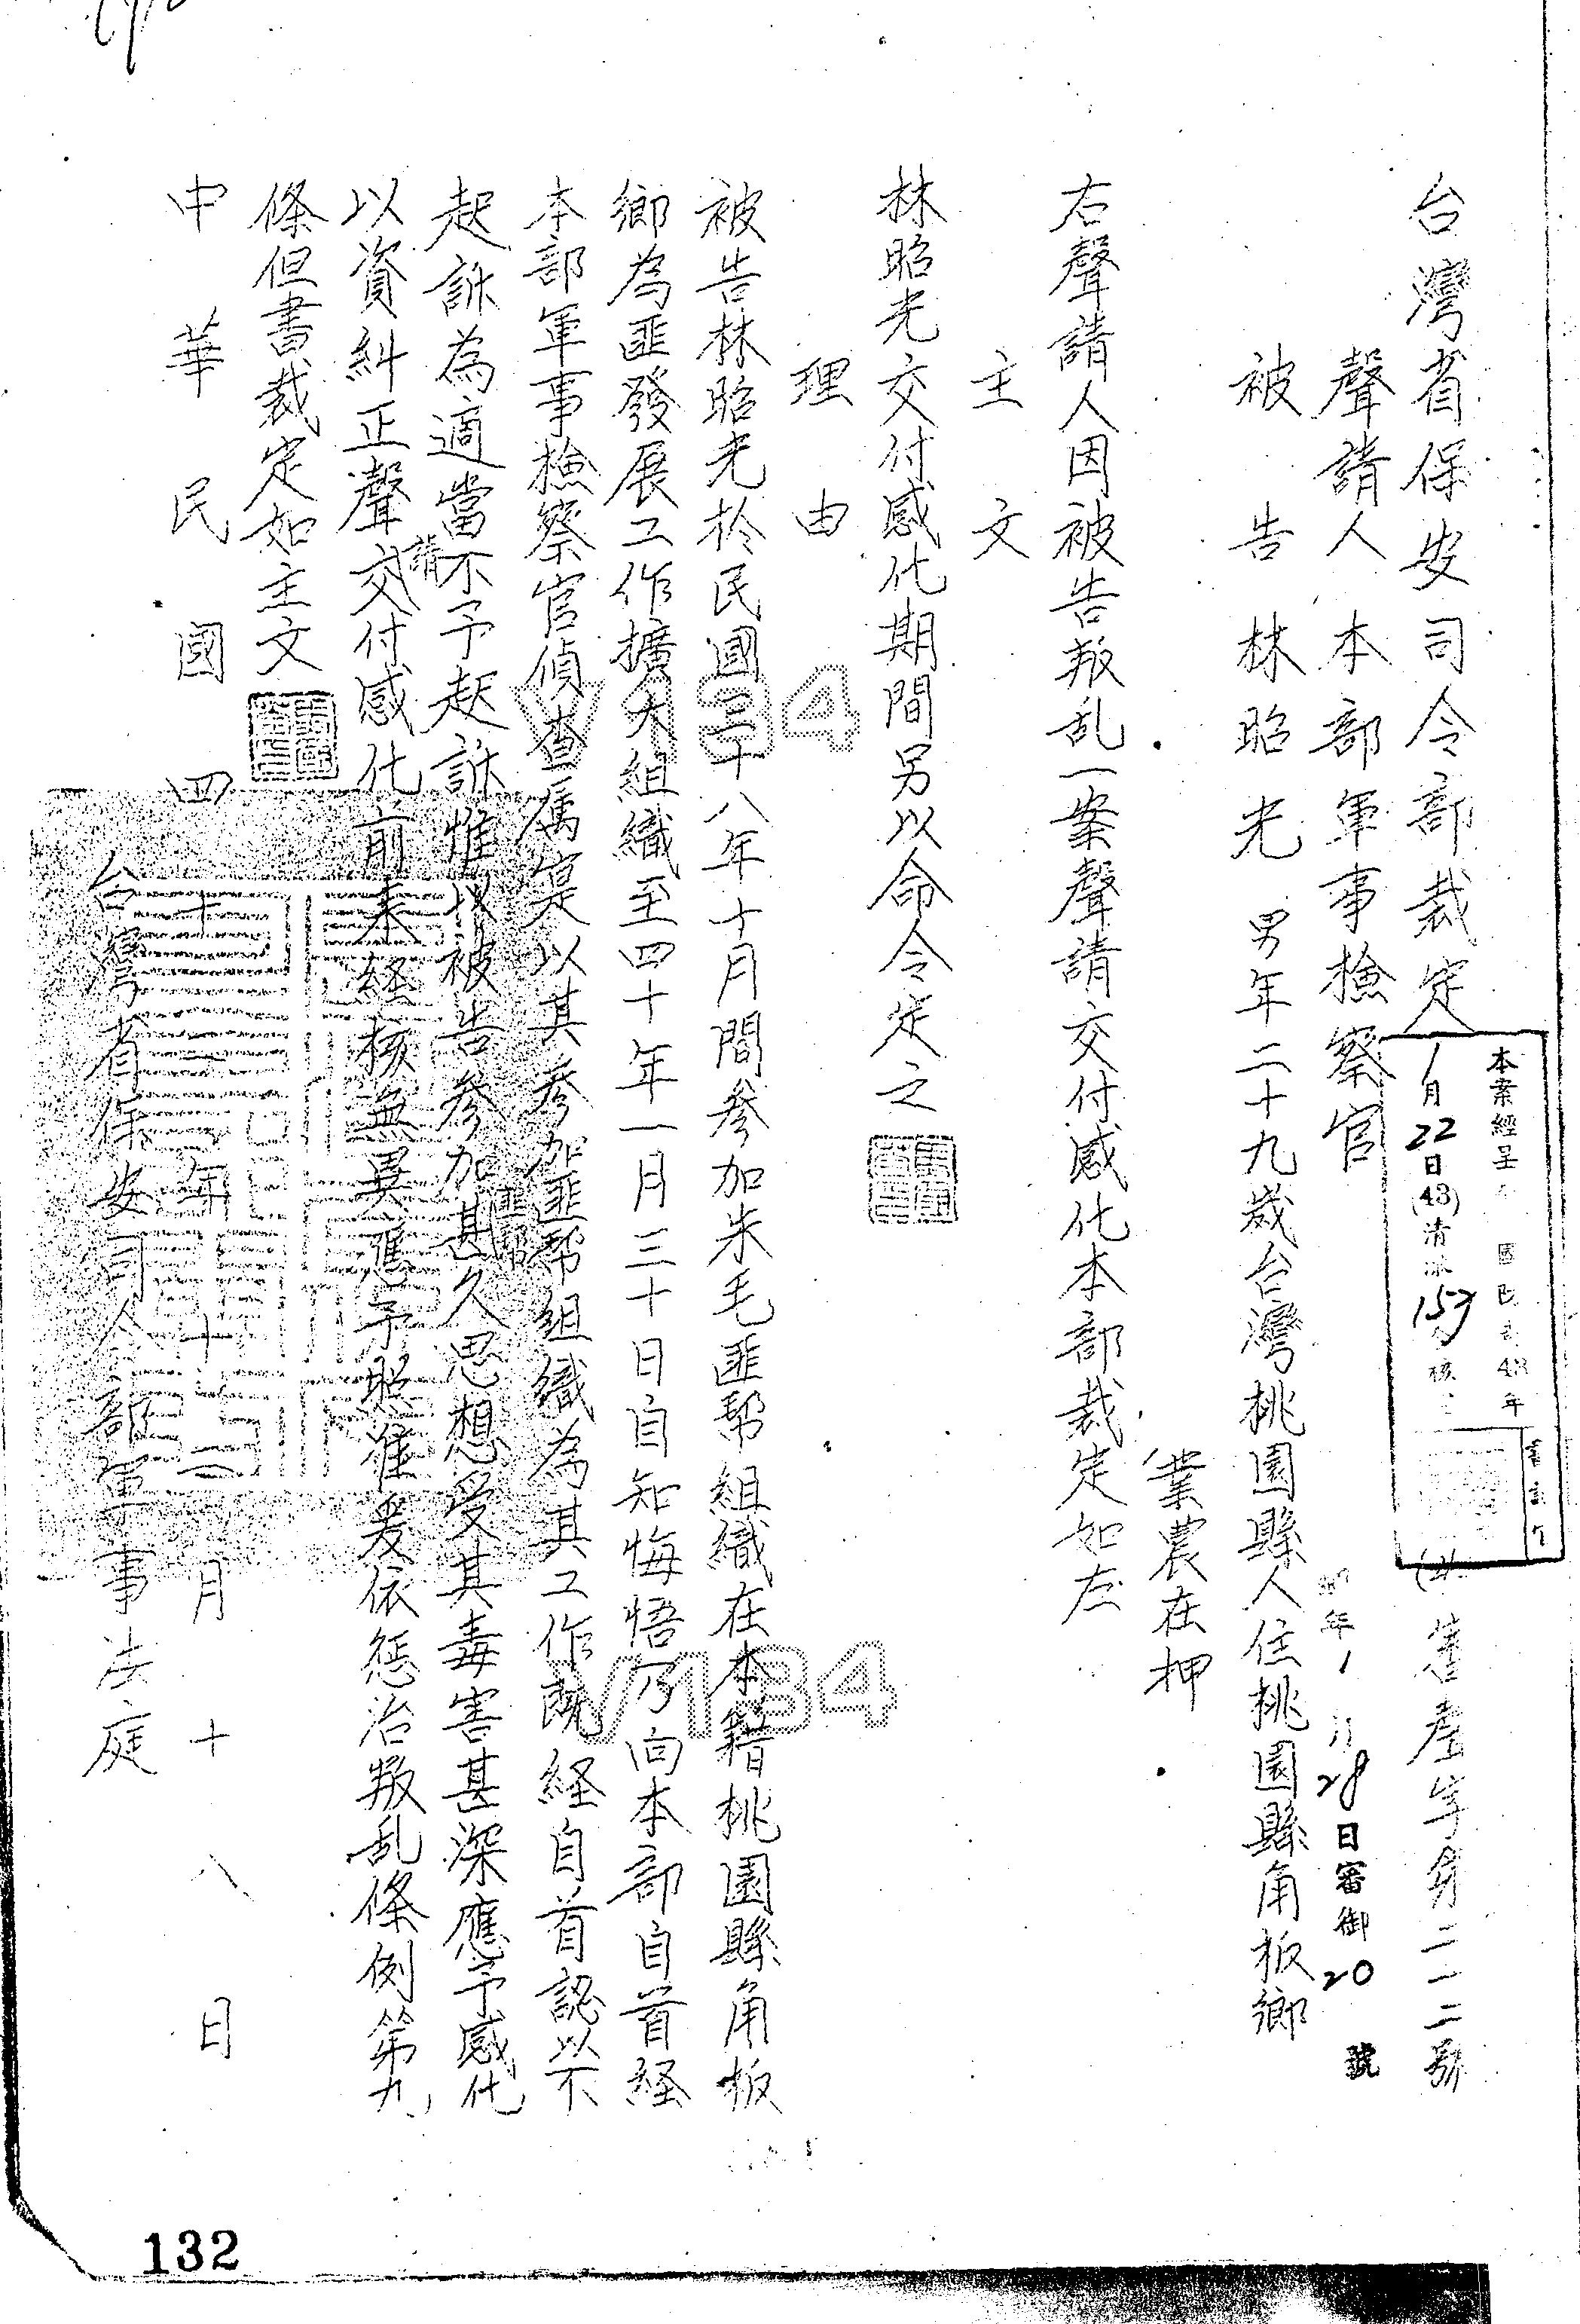 台灣省保安司令部裁定
審聲字第二一二號
本案經呈 國防部43年
1月22日(43)清 153 核
年1月28日審御20號
聲請人 本部軍事檢察官
被告 林昭光 男年二十九歲台灣桃園縣人住桃園縣角板鄉
業農在押
右聲請人因被告叛乱一案聲請交付感化本部裁定如左
主文
林昭光交付感化期間另以命令定之
理由
被告林昭光於民國三十八年十月間參加朱毛匪幫組織在本籍桃園縣角板
鄉為匪發展工作擴大組織至四十年一月三十日自知悔悟乃向本部自首經
本部軍事檢察官偵查属寔以其參加匪幫組織為其工作既経自首認以不
起訴為適當不予起訴惟以被告參加匪幫甚久思想受其毒害甚深應予感化
以資糾正聲請交付感化前來経核無異應予照准爰依懲治叛乱條例第九
條但書裁定如主文
中華民國四十二年十二月十八日
台灣省保安司令部軍事法庭
V184
V184
132